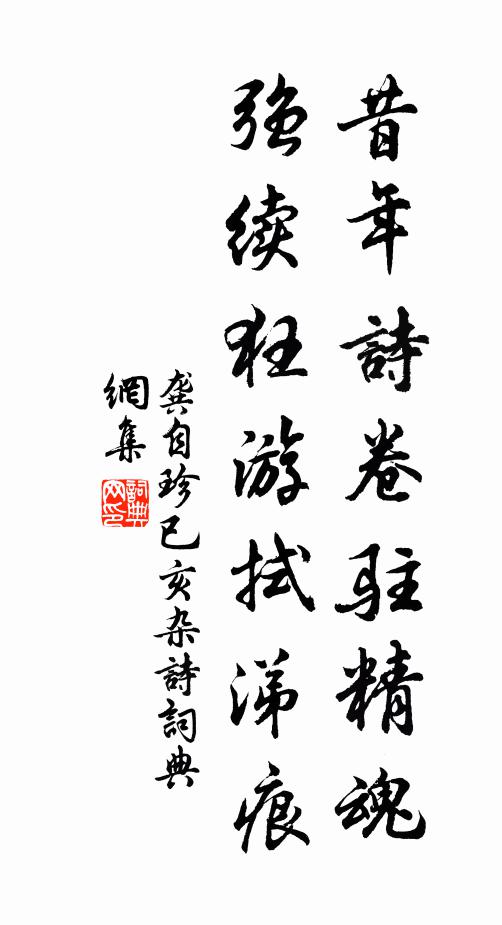 昔年詩卷駐精魂
强续狂游拭涕痕
龚自珍己亥杂詩詞典
網集
詞典网印